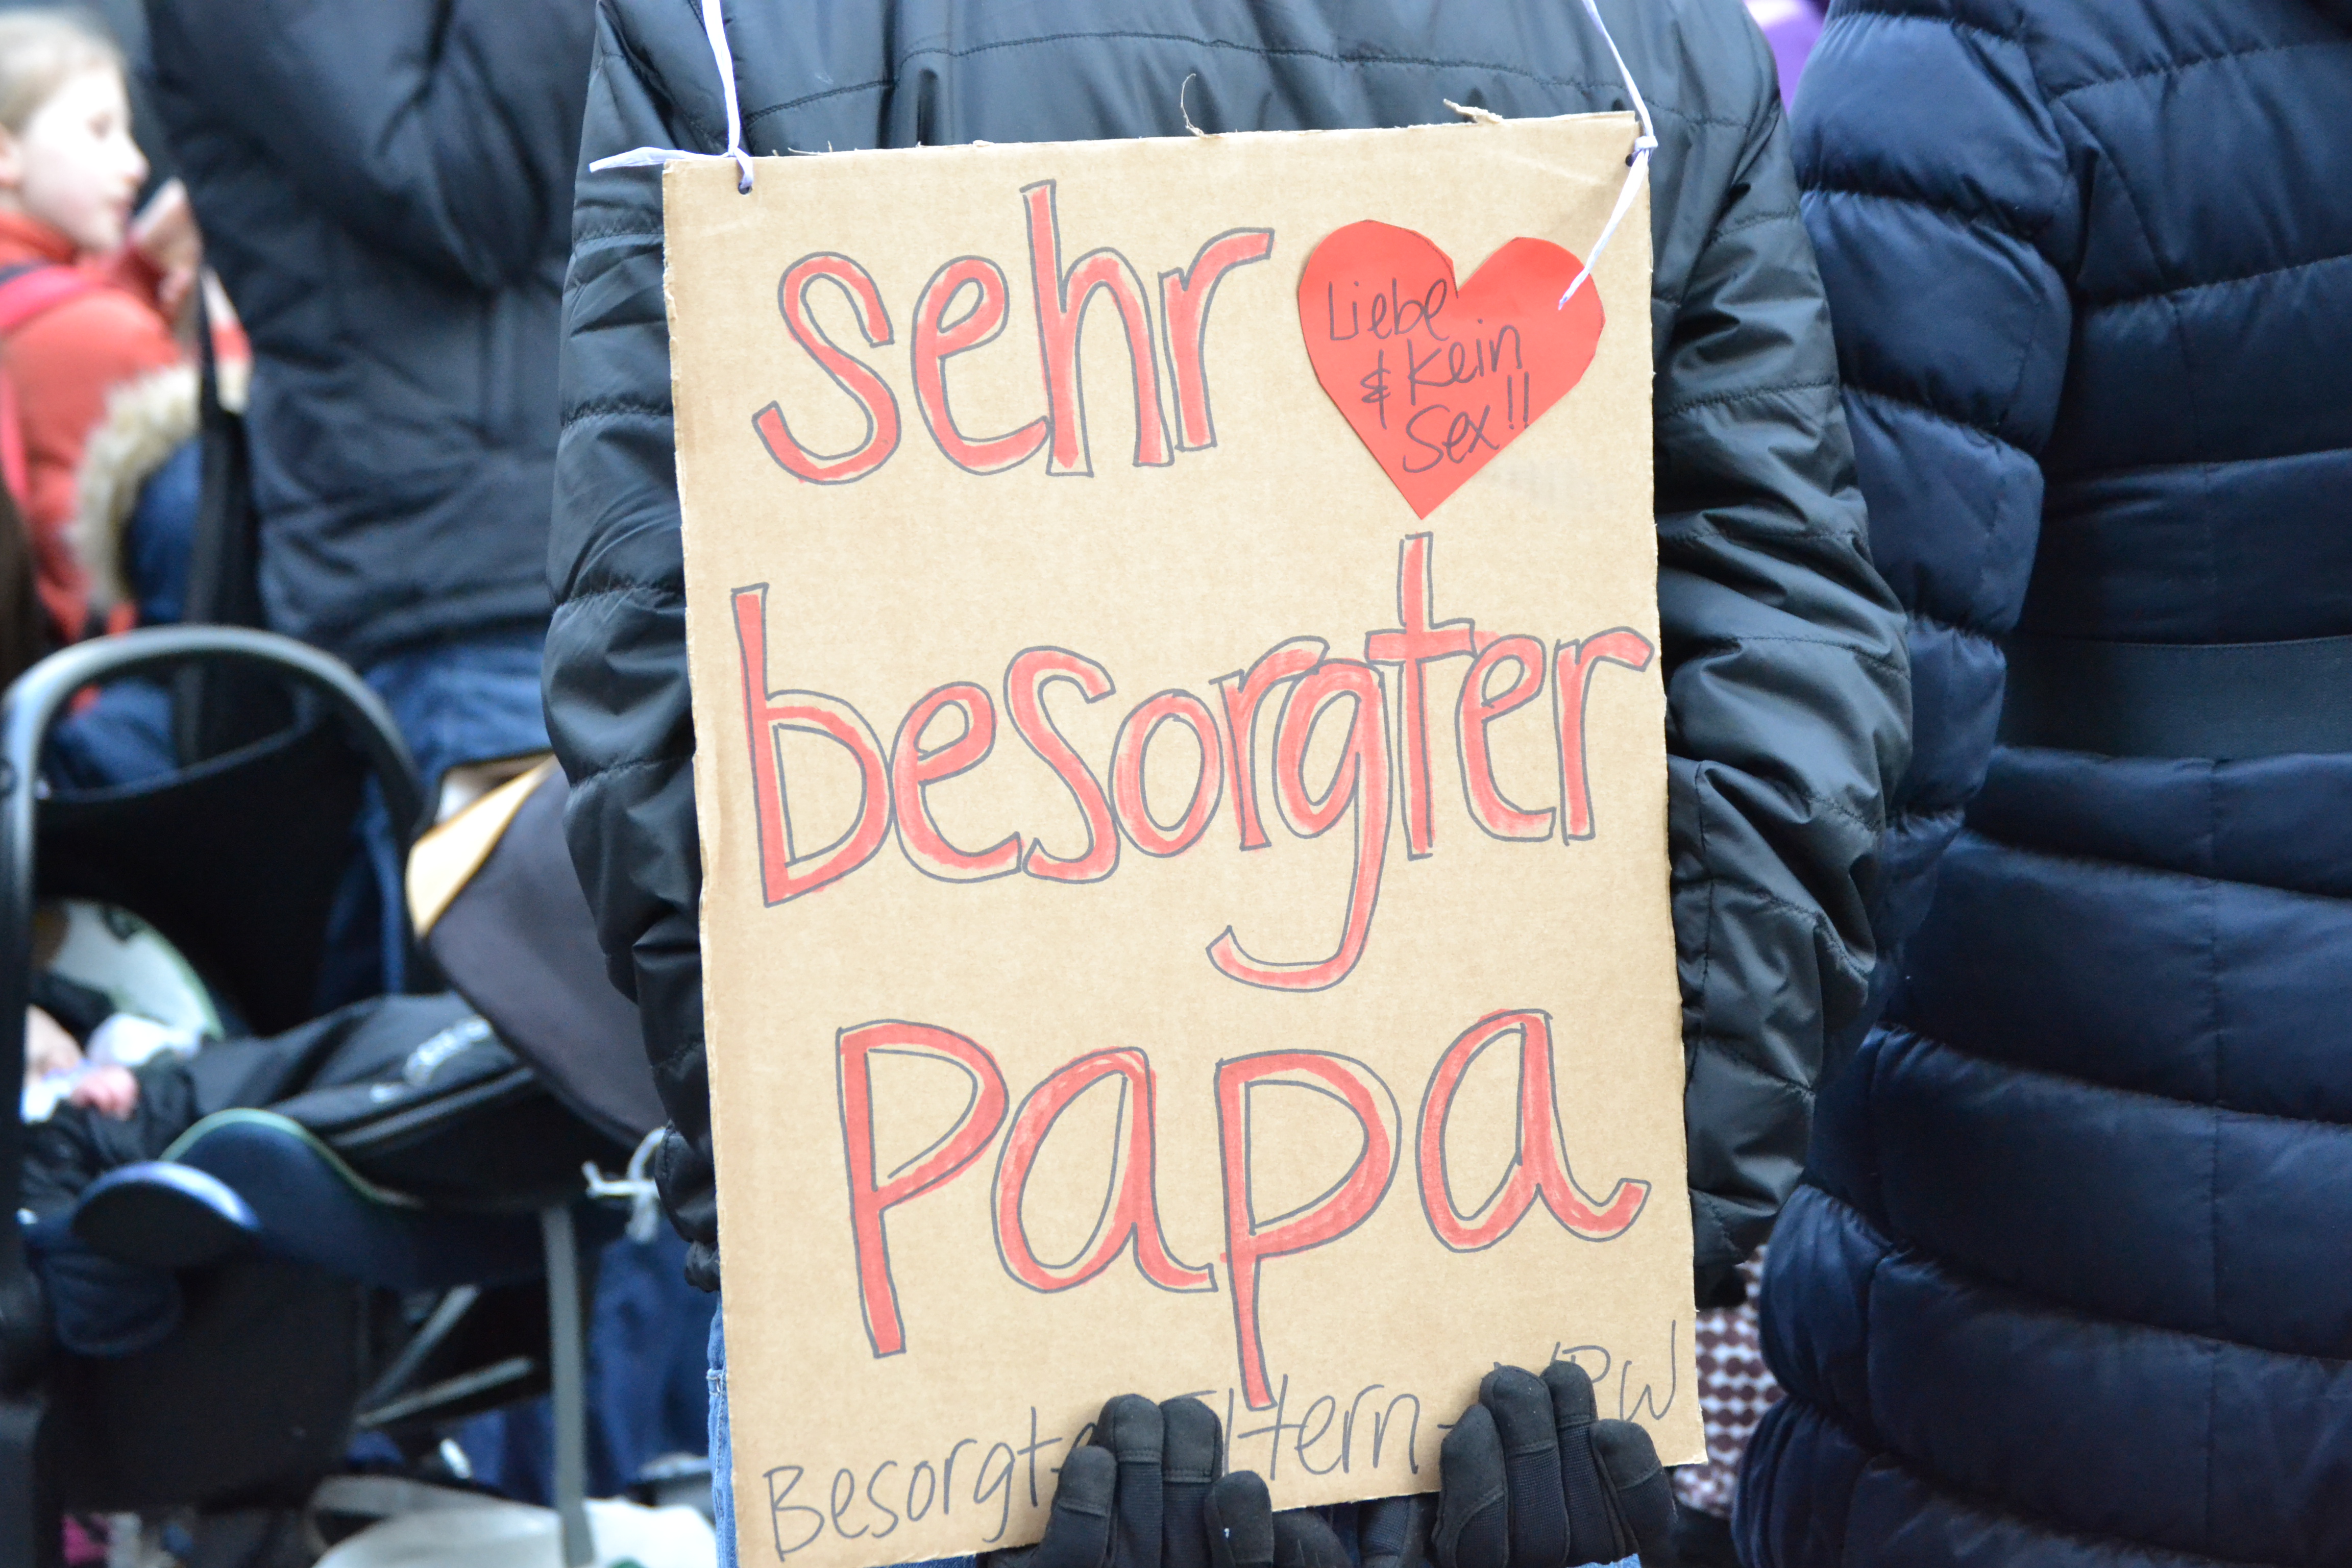 sehr
Liebe
& kein
Sex!!
besorgter
Papa
Besorgte Eltern-